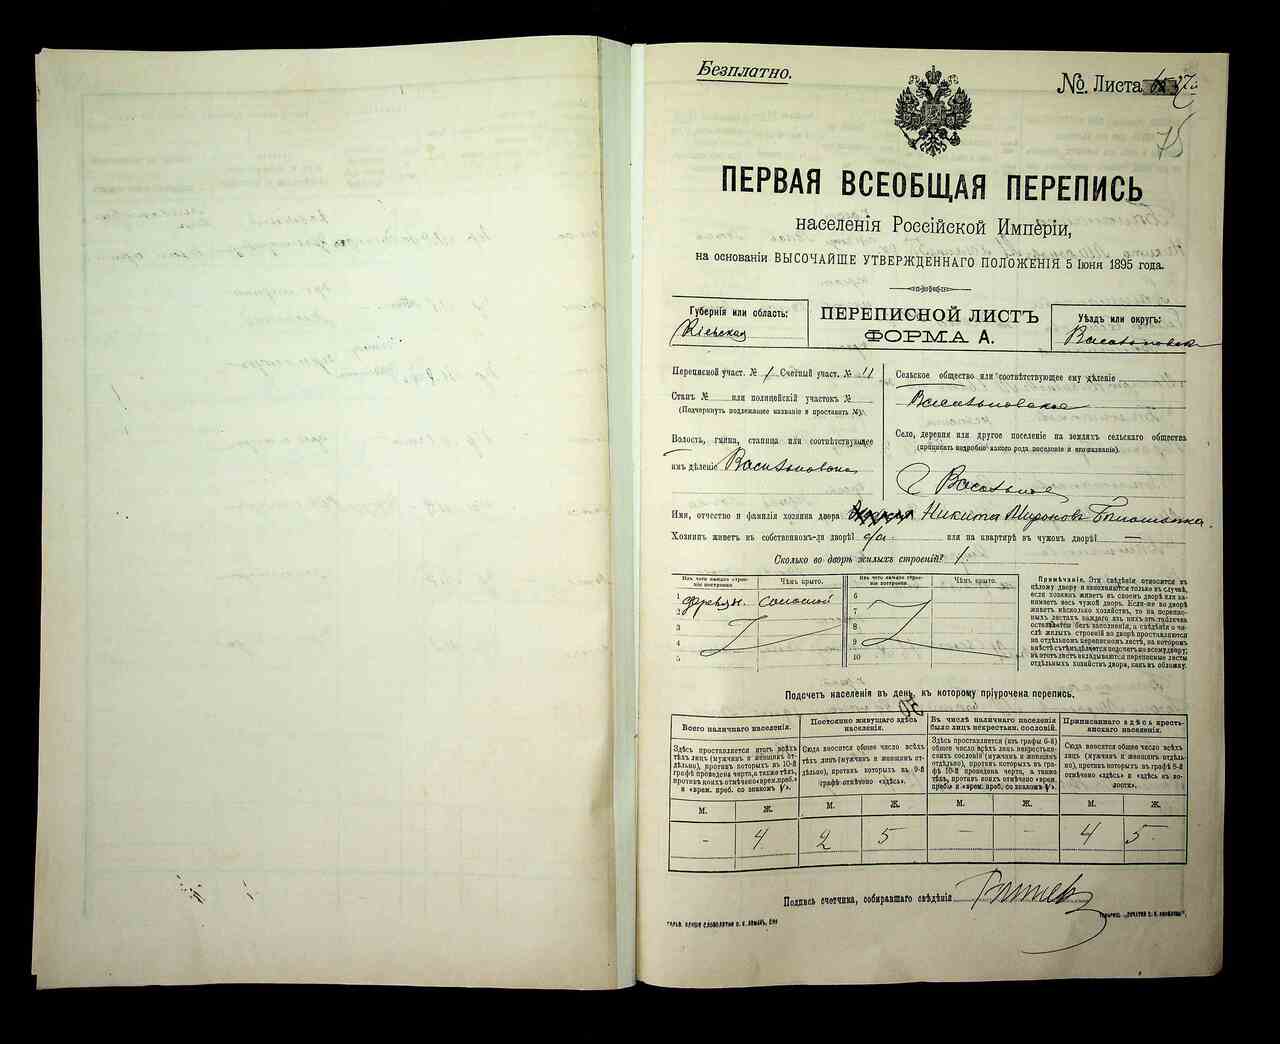 Безплатно.
№. Листа
75
ПЕРВАЯ ВСЕОБЩАЯ ПЕРЕПИСЬ
населенія Россійской Имперіи,
на основаніи ВЫСОЧАЙШЕ УТВЕРЖДЕННАГО ПОЛОЖЕНІЯ 5 Іюня 1895 года.
Губернія или область:
Кіевская
ПЕРЕПИСНОЙ ЛИСТЪ
ФОРМА А.
Уѣздъ или округъ:
Переписной участ. № 1 Счетный участ. № 11
Станъ № или полицейскій участокъ №
(Подчеркнуть подлежащее названіе и проставить №).
Волость, гмина, станица или соотвѣтствующее
имъ дѣленіе
Сельское общество или соотвѣтствующее ему дѣленіе
Васильковское
Село, деревня или другое поселеніе на земляхъ сельскаго общества
(приписать подробно какого рода поселеніе и его названіе).
Имя, отчество и фамилія хозяина двора Никита Мироновъ
Хозяинъ живетъ въ собственномъ-ли дворѣ? да или на квартирѣ въ чужомъ дворѣ? —
Сколько во дворѣ жилыхъ строеній? 1
Изъ чего каждое строеніе построено Чѣмъ крыто. Изъ чего каждое строеніе построено Чѣмъ крыто.
1 деревян. соломой 6
2 7
3 8
4 9
5 10
Примѣчаніе. Эти свѣдѣнія относятся къ
цѣлому двору и заполняются только въ случаѣ,
если хозяинъ живетъ въ своемъ дворѣ или занимаетъ
весь чужой дворъ. Если-же во дворѣ
живетъ нѣсколько хозяйствъ, то на переписныхъ
листахъ каждаго изъ нихъ эта табличка
оставляется безъ заполненія, а свѣдѣнія о числѣ
жилыхъ строеній во дворѣ проставляются
на отдѣльномъ переписномъ листѣ, на которомъ
вмѣстѣ съ тѣмъ дѣлается подсчетъ по всему двору;
въ этотъ листъ вкладываются переписные листы
отдѣльныхъ хозяйствъ двора, какъ въ обложку.
Подсчетъ населенія въ день, къ которому пріурочена перепись.
Всего наличнаго населенія. Постоянно живущаго здѣсь населенія. Въ числѣ наличнаго населенія было лицъ некрестьян. сословій. Приписаннаго здѣсь крестьянскаго населенія.
Здѣсь проставляется итогъ всѣхъ тѣхъ лицъ (мужчинъ и женщинъ отдѣльно), противъ которыхъ въ 10-й графѣ проведена черта, а также тѣхъ, противъ коихъ отмѣчено «врем. преб.» и «врем. преб. со знакомъ V».
Сюда вносится общее число всѣхъ тѣхъ лицъ (мужчинъ и женщинъ отдѣльно), противъ которыхъ въ 9-й графѣ отмѣчено «здѣсь».
Здѣсь проставляется (изъ графы 6-й) общее число всѣхъ лицъ некрестьянскихъ сословій (мужчинъ и женщинъ отдѣльно), противъ которыхъ въ графѣ 10-й проведена черта, а также тѣхъ, противъ коихъ отмѣчено «врем. преб.» и «врем. преб. со знакомъ V».
Сюда вносится общее число всѣхъ лицъ (мужчинъ и женщинъ отдѣльно), противъ которыхъ въ графѣ 8-й отмѣчено «здѣсь» и «здѣсь въ волости».
М. Ж. М. Ж. М. Ж. М. Ж.
- 4 2 5 - - 4 5
Подпись счетчика, собиравшаго свѣдѣнія